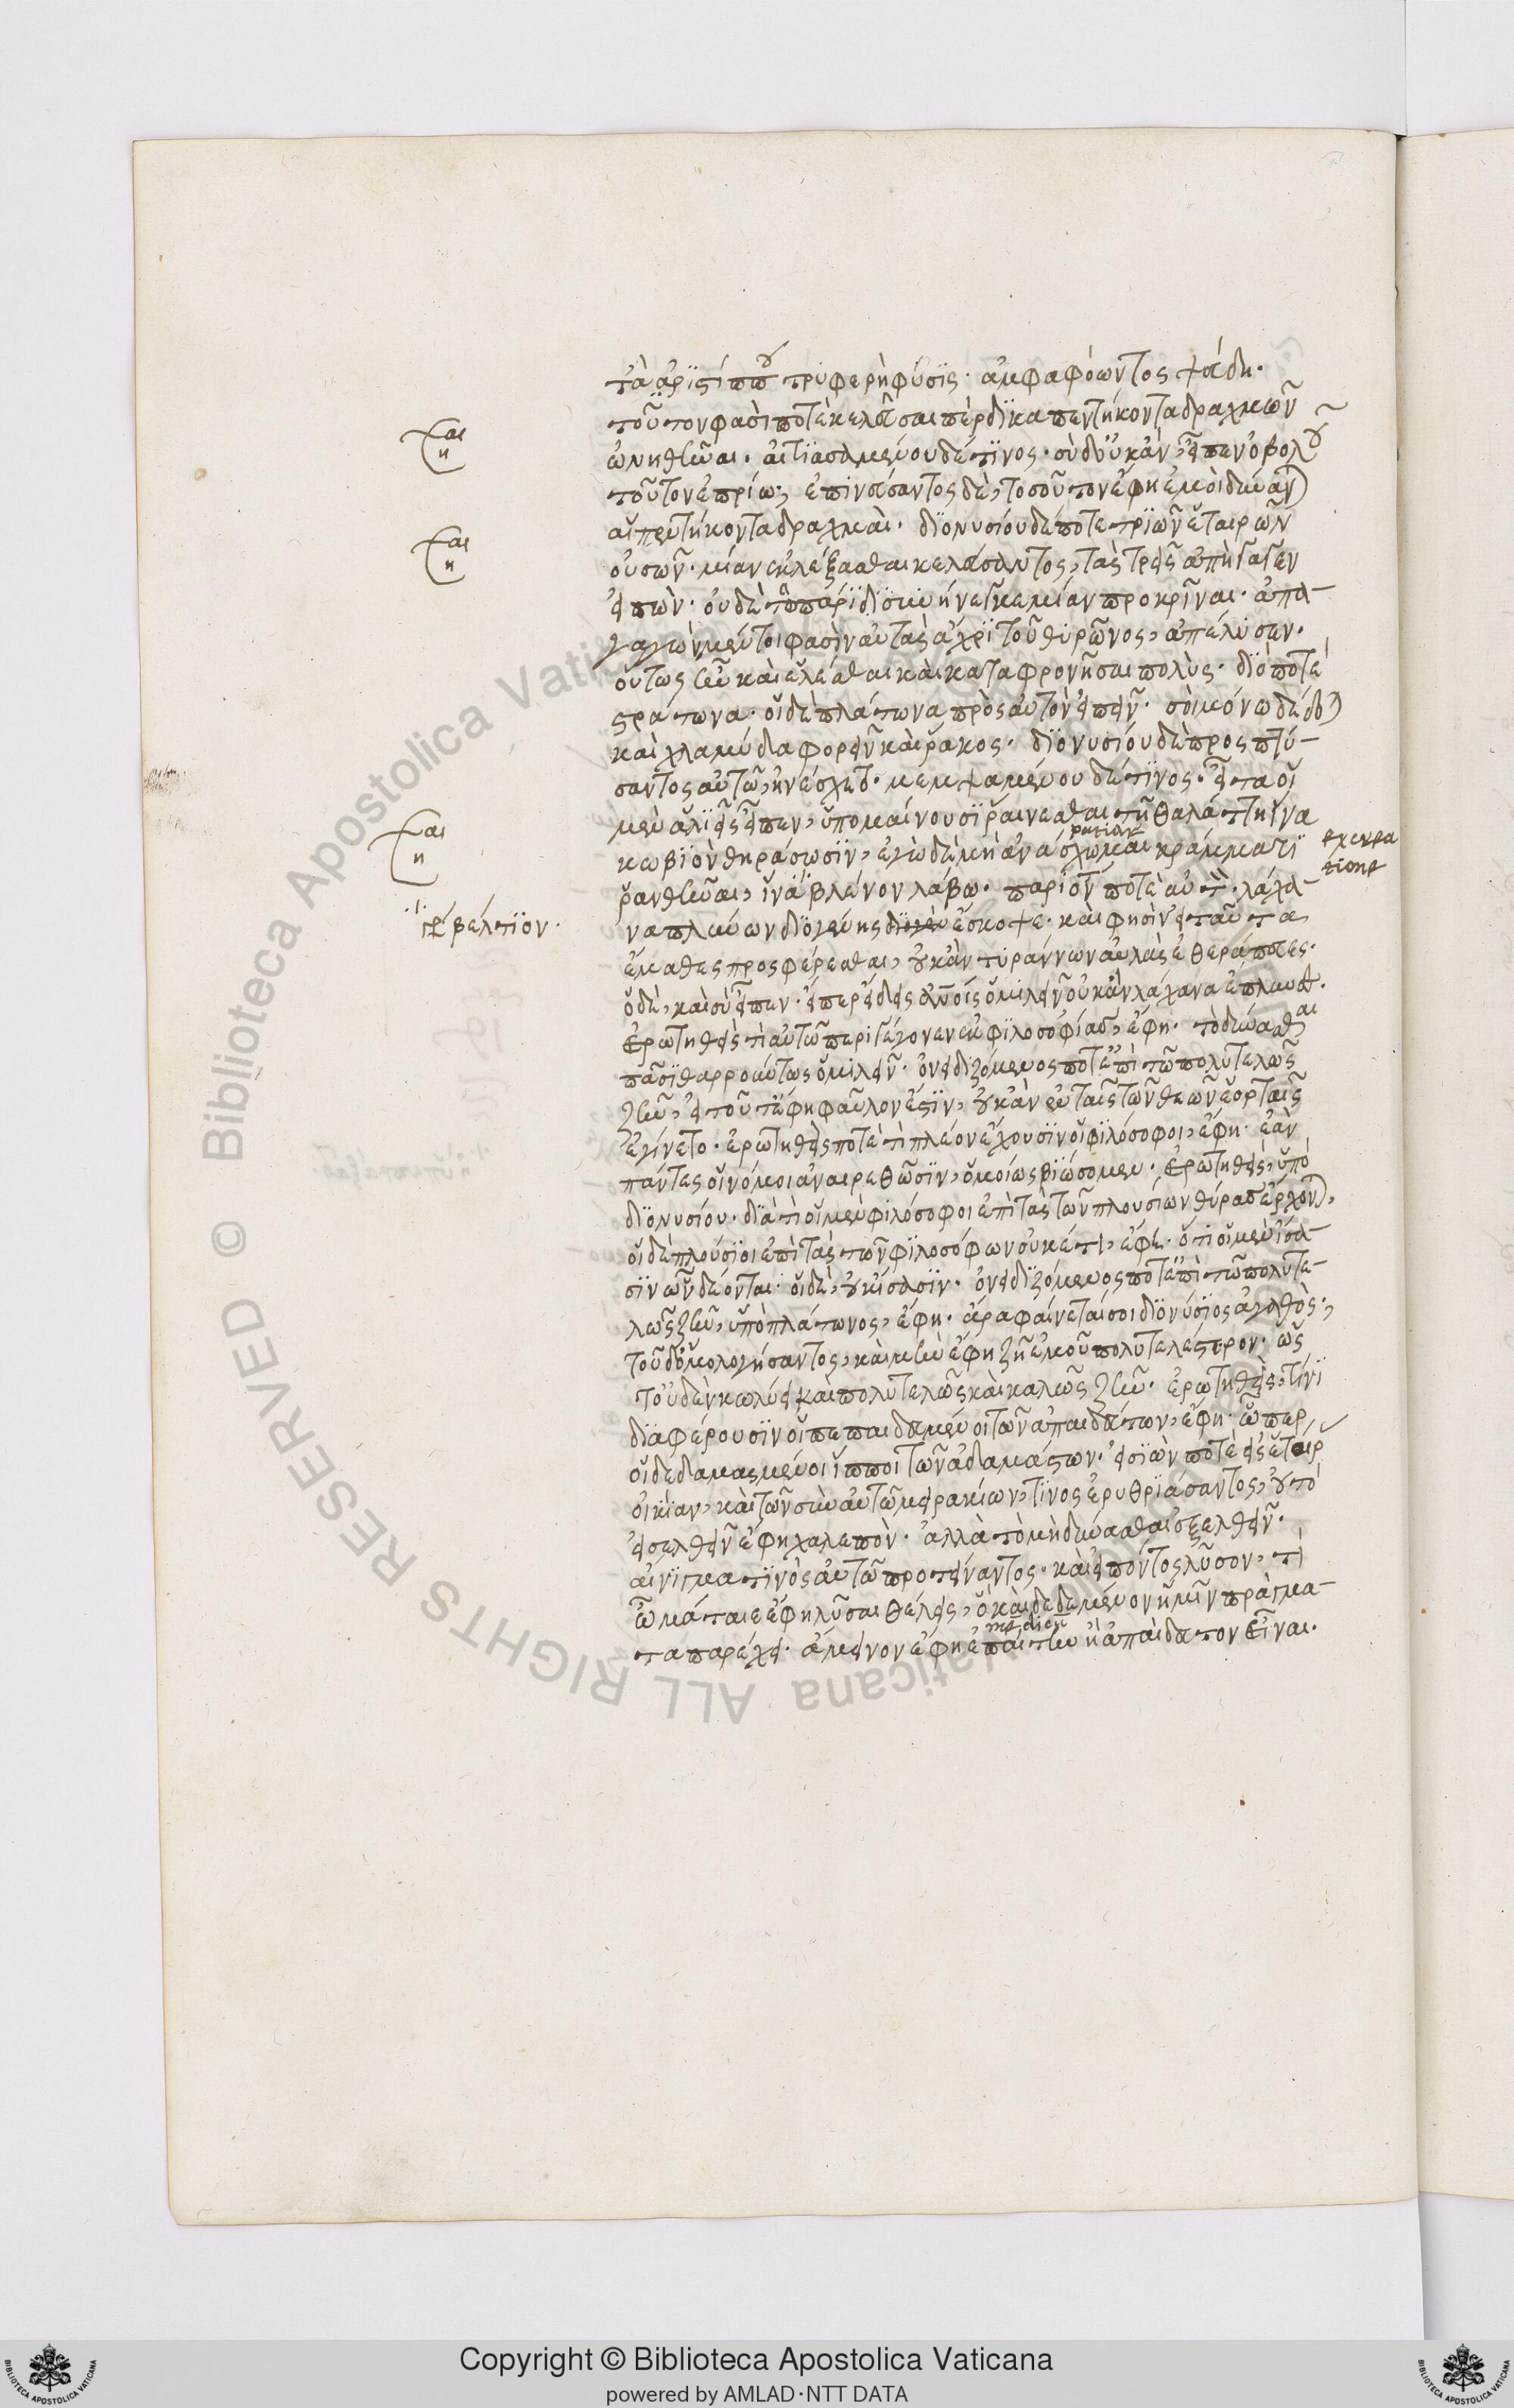 τὰ ἀριστίππου τρυφερὴ φύσις· ἀμφαφόωντος ψάδη·
τοῦτον φασί ποτε κελεῦσαι πέρδικα πεντήκοντα δραχμῶν
ὠνηθῆναι. αἰτιασαμένου δέ τινος· σὺ δ' οὐκ ἂν, εἶπεν ὀβολοῦ
τοῦτον ἐπρίω; ἐπινεύσαντος δὲ, τοσοῦτον ἔφη ἐμοὶ δύναν)
αἱ πεντήκοντα δραχμαί. διονυσίου δέ ποτε τριῶν ἑταιρῶν
οὐσῶν· μίαν ἐκλέξασθαι κελεύσαντος, τὰς τρεῖς ἀπήγαγεν
εἰπών· οὐδὲ τῷ πάριδι συνήνεγκε μίαν προκρῖναι· ἀπα-
γαγὼν μέντοι φασὶν αὐτὰς ἄχρι τοῦ θυρῶνος, ἀπέλυσεν.
οὕτως ἦν καὶ ἑλέσθαι καὶ καταφρονῆσαι πολύς· διό ποτε
στράτωνα· οἱ δὲ πλάτωνα πρὸς αὐτὸν εἰπεῖν· σοὶ μόνω δέδο)
καὶ χλαμύδα φορεῖν καὶ ῥάκος. διονυσίου δὲ προσπτύ-
σαντος αὐτῶ, ἠνέσχετο. μεμψαμένου δέ τινος· εἶτα οἱ
μὲν ἁλιεῖς εἶπεν, ὑπομένουσι ῥαίνεσθαι τῆ θαλάττη ἵνα
κωβιὸν θηράσωσιν, ἐγὼ δὲ μὴ ἀνάσχωμαι κράμματι
ῥανθῆναι, ἵνα βλένον λάβω. παριόντ ποτὲ αὐτ· λάχα-
να πλύνων διογένης διογὲν ἔσκοψε· καὶ φησὶν εἰ ταῦτα
ἔμαθες προσφέρεσθαι, οὐκ ἂν τυράννων αὐλὰς ἐθεράπευες.
ὁ δὲ, καὶ σὺ εἶπεν· εἴπερ ἤδεις ἀνοις ὁμιλεῖν οὐκ ἂν λάχανα ἔπλυνες.
ἐρωτηθεὶς τί αὐτῶ περιγέγονεν ἐκ φιλοσοφίας, ἔφη· τὸ δύνασθαι
πᾶσι θαρρούντως ὁμιλεῖν. ὀνειδιζόμενός ποτ' ἐπὶ τῶ πολυτελῶς
ζῆν, εἰ τοῦτ' ἔφη φαῦλον ἐστιν, οὐκ ἂν ἐν ταῖς τῶν θεῶν ἑορταῖς
ἐγίνετο. ἐρωτηθείς ποτε τί πλέον ἔχουσιν οἱ φιλόσοφοι, ἔφη· ἐὰν
πάντες οἱ νόμοι ἀναιρεθῶσιν, ὁμοίως βιώσομεν. ἐρωτηθεὶς, ὑπὸ
διονυσίου· διὰ τί οἱ μὲν φιλόσοφοι ἐπὶ τὰς τῶν πλουσίων θύρας ἔρχον),
οἱ δὲ πλούσιοι ἐπὶ τὰς τῶν φιλοσόφων οὐκέτι, ἔφη· ὅτι οἱ μὲν ἴσα-
σιν ὧν δέονται· οἱ δὲ, οὐκ ἴσασιν. ὀνειδιζόμενός ποτ' ἐπὶ τῶ πολυτε-
λῶς ζῆν, ὑπὸ πλάτωνος, ἔφη. ἆρα φαίνεταί σοι διονύσιος ἀγαθός;,
τοῦ δ' ὁμολογήσαντος, καὶ μὴν ἔφη ζῆ ἐμοῦ πολυτελέστερον· ὥς
τ' οὐδὲν κωλύει καὶ πολυτελῶς καὶ καλῶς ζῆν. ἐρωτηθεὶς, τίνι
διαφέρουσιν οἱ πεπαιδευμένοι τῶν ἀπαιδεύτων, ἔφη· ᾧπερ
οἱ δεδαμασμένοι ἵπποι τῶν ἀδαμάστων. εἰσιών ποτε εἰς ἑταίρ
οἰκίαν, καὶ τῶν σὺν αὐτῶ μειρακίων, τινος ἐρυθριάσαντος, οὐ τὸ
εἰσελθεῖν ἔφη χαλεπὸν· ἀλλὰ τὸ μὴ δύνασθαι ἐξελθεῖν.
αἴνιγμά τινὸς αὐτῶ προτείναντος· καὶ εἰπόντος λῦσον, τί
ὦ μάταιε ἔφη λῦσαι θέλεις, ὃ καὶ δεδεμένον ἡμῖν πράγμα-
τα παρέχει. ἄμεινον ἔφη ἐπαίτην ἢ ἀπαίδευτον εἶναι.
βέλτιον.